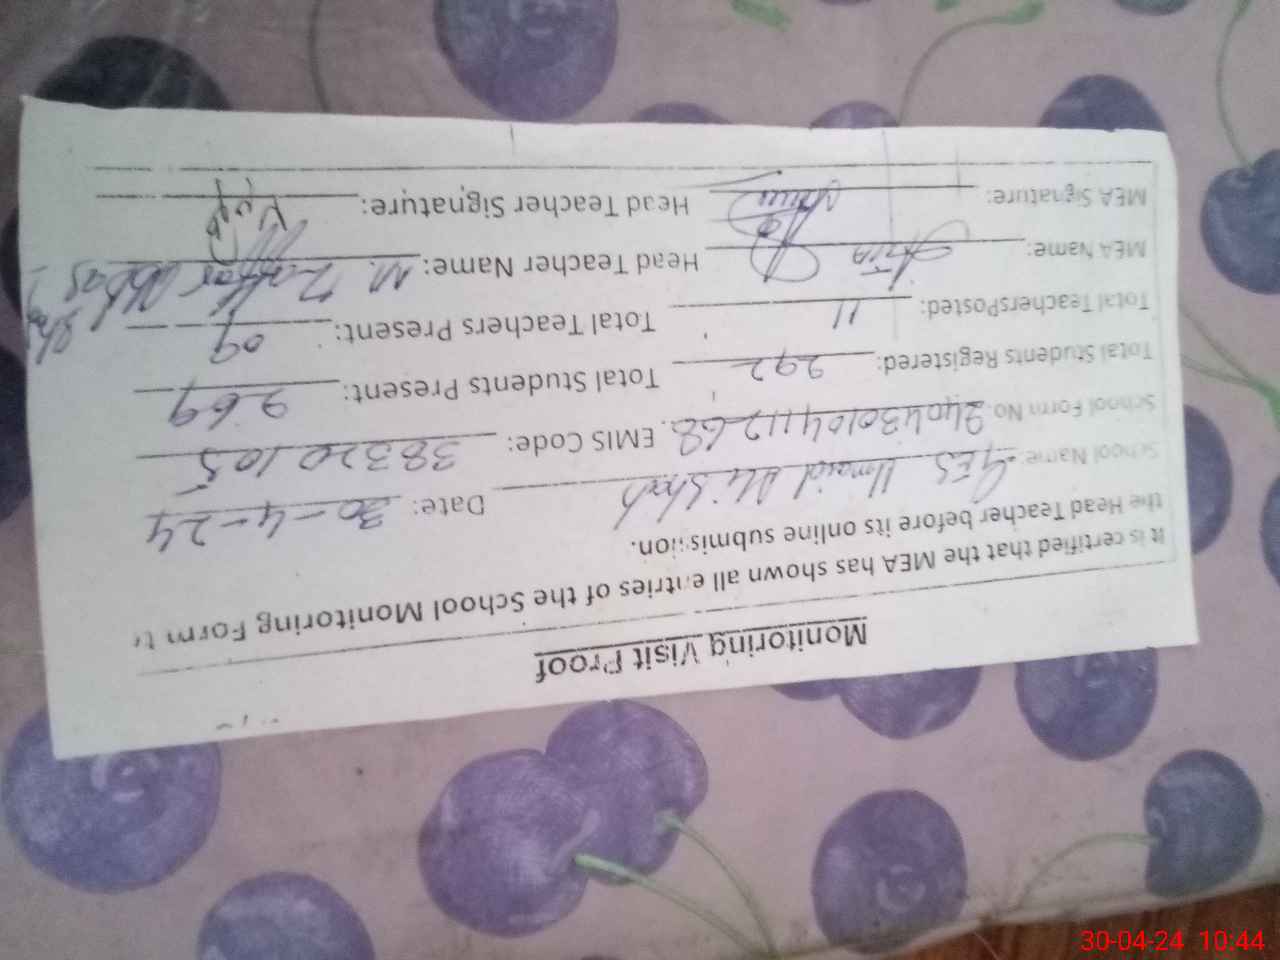 Monitoring Visit Proof
It is certified that the MEA has shown all entries of the School Monitoring Form to
the Head Teacher before its online submission.
School Name: GES Umaid Ali Shah Date: 30-4-24
School Form No. 24043010411268. EMIS Code: 38320105
Total Students Registered: 292 Total Students Present: 269
Total TeachersPosted: 11 Total Teachers Present: 09
MEA Name: Head Teacher Name: M. Zaffar Abbas Shah
MEA Signature: Head Teacher Signature:
30-04-24 10:44